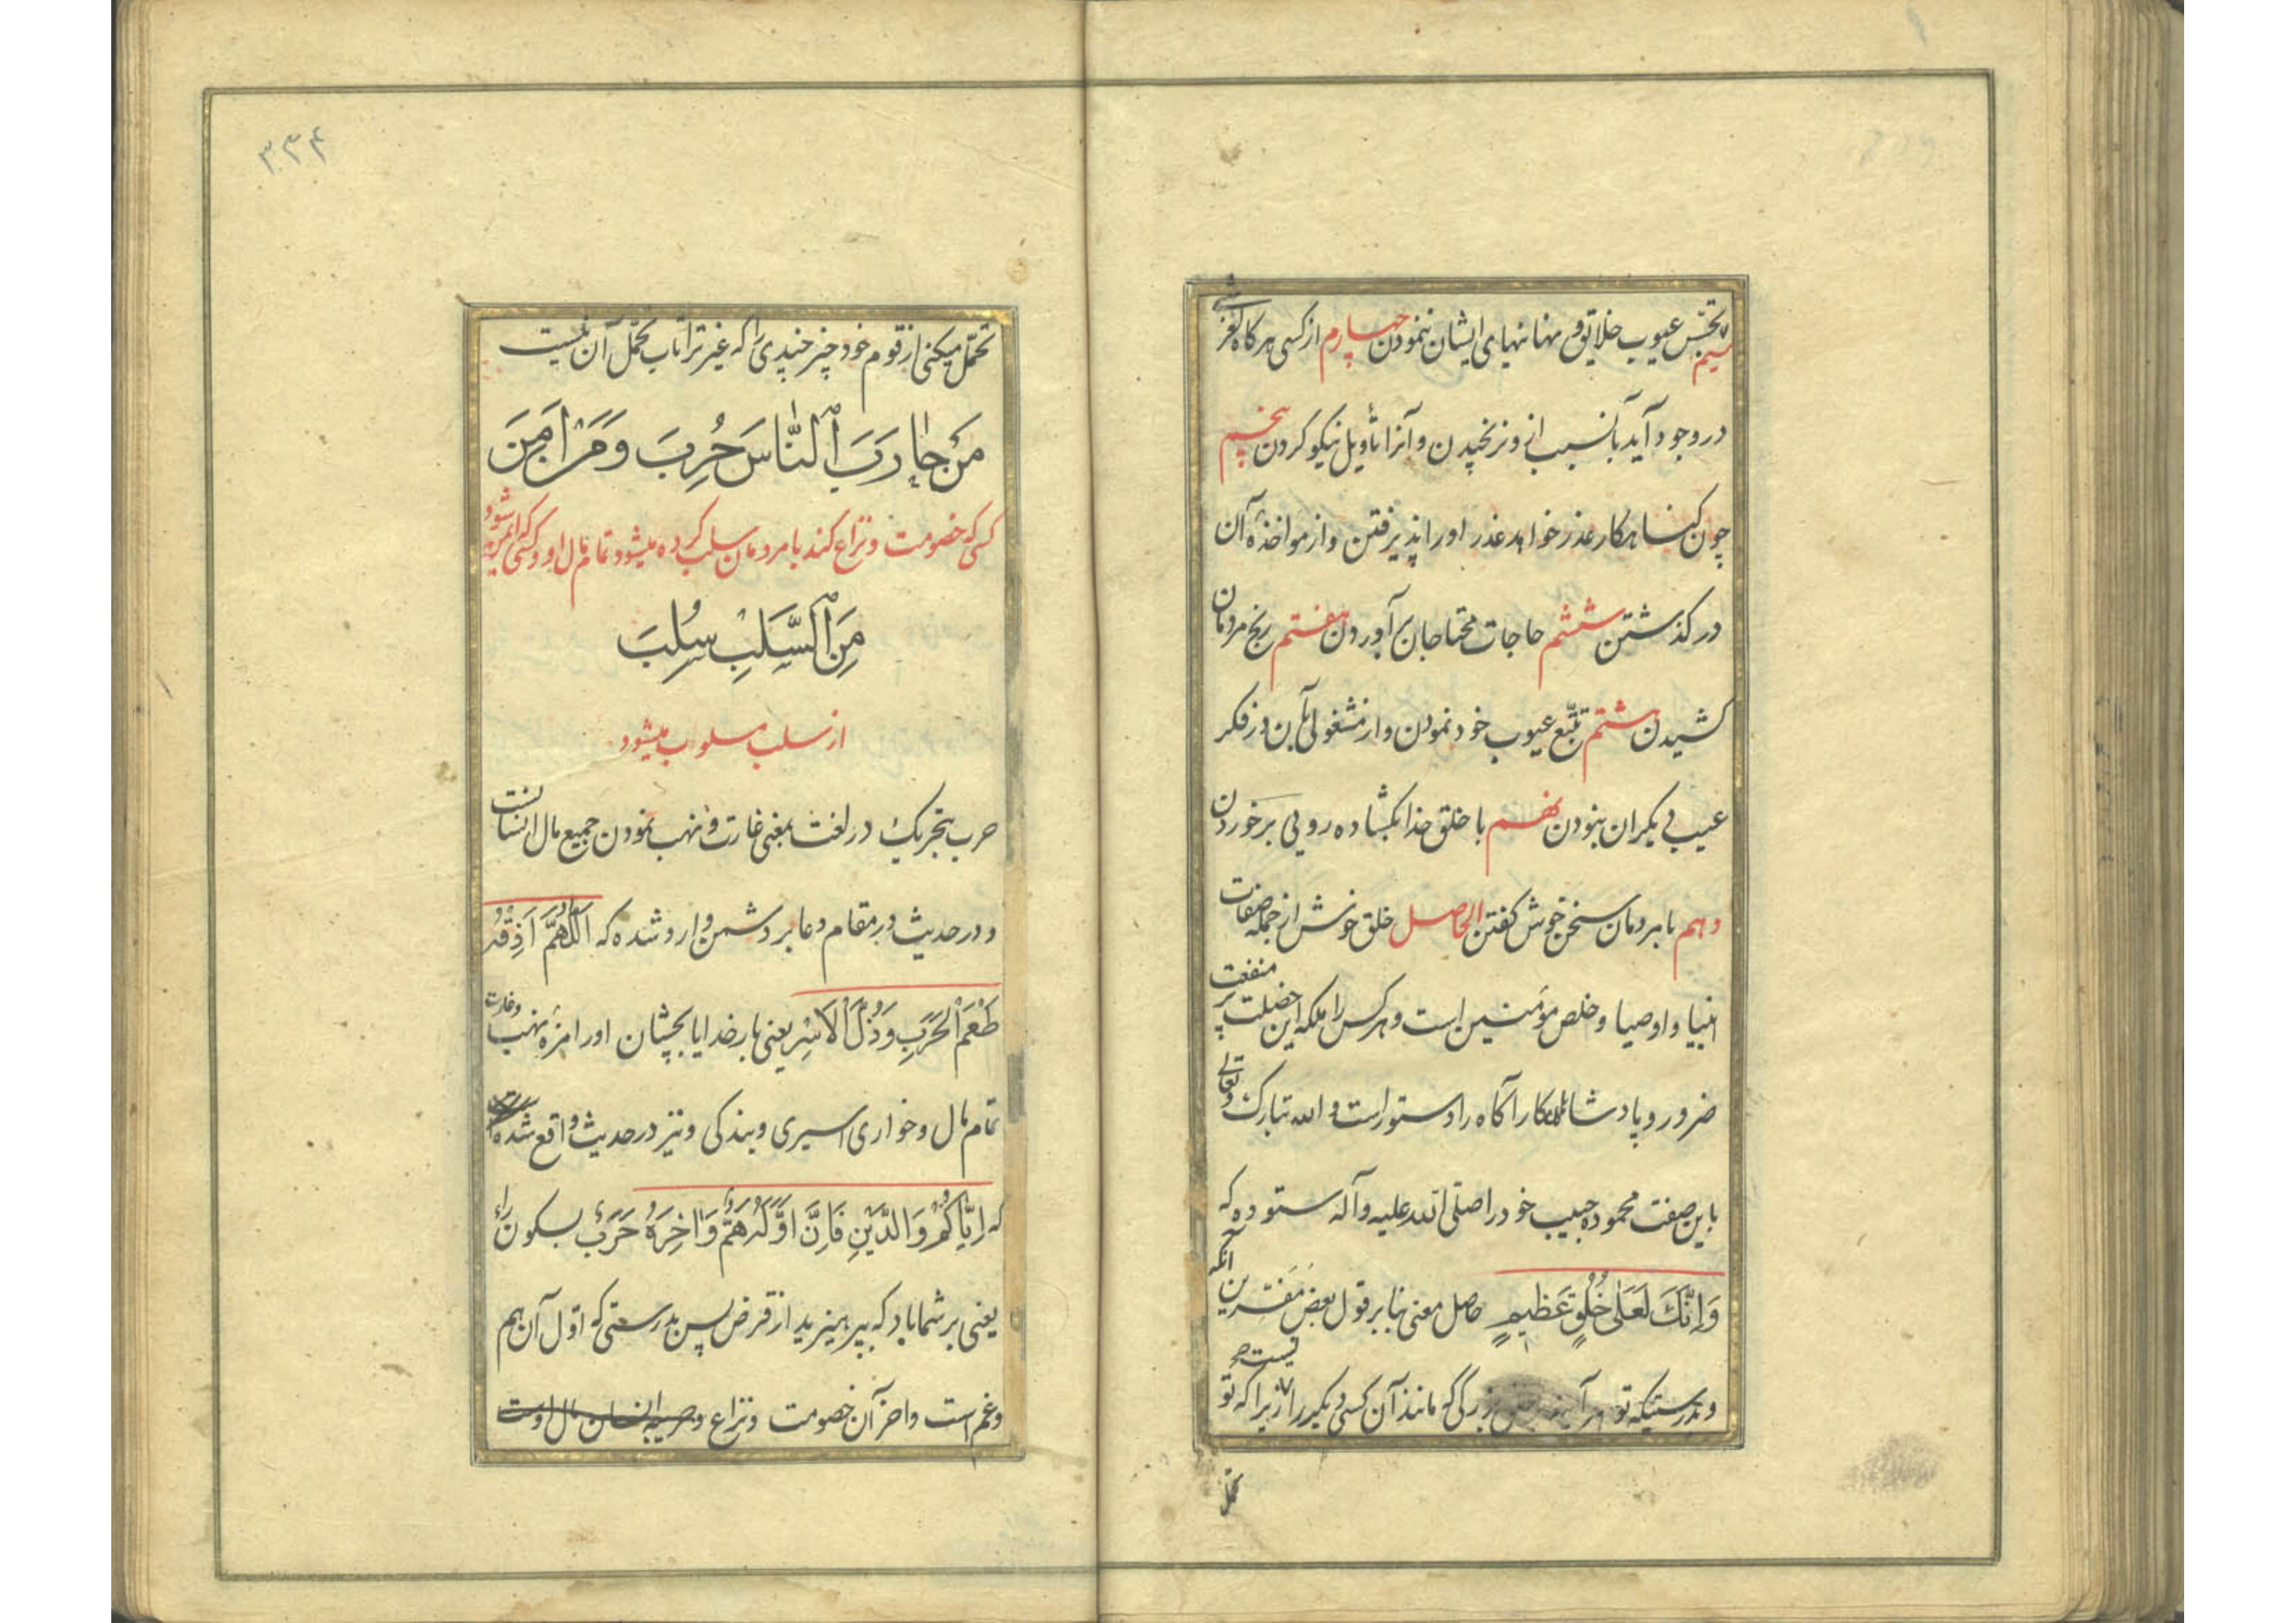 تجسّس عیوب خلایق و مهانیهای ایشان ننمودن چهارم از کسی هر گاه لغزشی
سیم
در وجود آید بآنسبب از و نرنجیدن و آنرا تأویل نیکو کردن پنجم
چون کناهکار عذر خواهد عذر اورا پذیرفتن و از مواخذهٔ آن
در کذشتن ششم حاجات محتاجان برآوردن هفتم رنج مردمان
کشیدن هشتم تتبّع عیوب خود نمودن و از مشغولی بآن در فکر
عیب دیکران نبودن نهم با خلق خدا بکشاده رویی برخوردن
دهم با مردمان سخن خوش کفتن الحاصل خلق خوش از جمله صفات
انبیا و اوصیا و خلص مؤمنین است و هر کس را ملکه این خصلت پر منفعت
ضرور و پادشاهان کارآکاه را دستور است و الله تبارک و تعالی
باین صفت محموده حبیب خود را صلی الله علیه و آله ستوده که
وَاِنَّكَ لَعَلٰی خُلُقٍ عَظیمٍ حاصل معنی بنا بر قول بعض مفسّرین آنکه
و بدرستیکه تو هر آینه بزرکی که مانند آن کسی دیکر را نیست چه زیرا که تو
تحمّل
۳۳۴
تحمّل میکنی از قوم خود چیز چندی را که غیر ترا تاب تحمّل آن نیست
مَنْ حٰارَبَ ٱلنّٰاسَ حُرِبَ وَمَنْ اَمِنَ
کسی که خصومت و نزاع کند با مردمان سلب کرده میشود تمام مال او و کسی که ایمن شود
مِنَ ٱلسَّلَبِ سُلِبَ
از سلب مسلوب میشود
حرب بتحریک در لغت بمعنی غارت و نهب نمودن جمیع مال انسانست
و در حدیث در مقام دعا بر دشمن وارد شده که اَللّٰهُمَّ اَذِقْهُ
طَعْمَ الْحَرَبِ وَ ذُلَّ الْاَسْرِ یعنی بار خدایا بچشان اورا مزهٔ نهب و غارت
تمام مال و خواری اسیری و بندکی و نیز در حدیث واقع شده
که اِیّٰاکُمْ وَ الدَّیْنَ فَاِنَّ اَوَّلَهُ هَمٌّ وَ اٰخِرَهُ حَرْبٌ بسکون راء
یعنی بر شما باد که بپرهیزید از قرض پس بدرستی که اوّل آن هم
و غم است و اخر آن خصومت و نزاع و حریبه انسان مال اوست